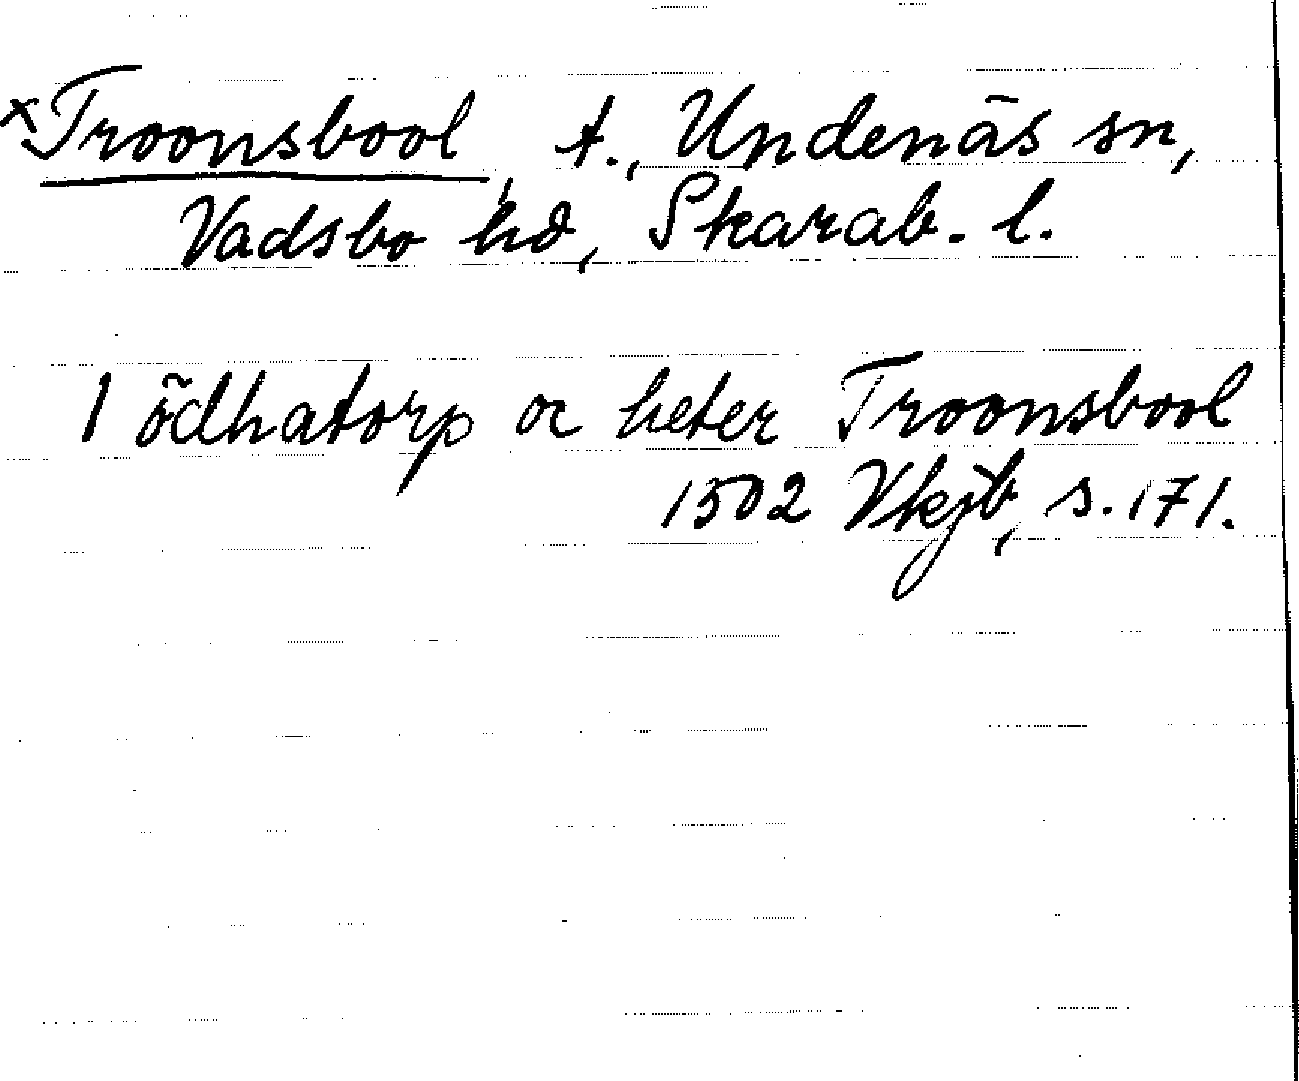 ×Troonsbool, t., Undenäs sn,
Vadsbo hd, Skarab. l.
1 ödhatorp oc heter Troonsbool
1502 Vkjb, s. 171.